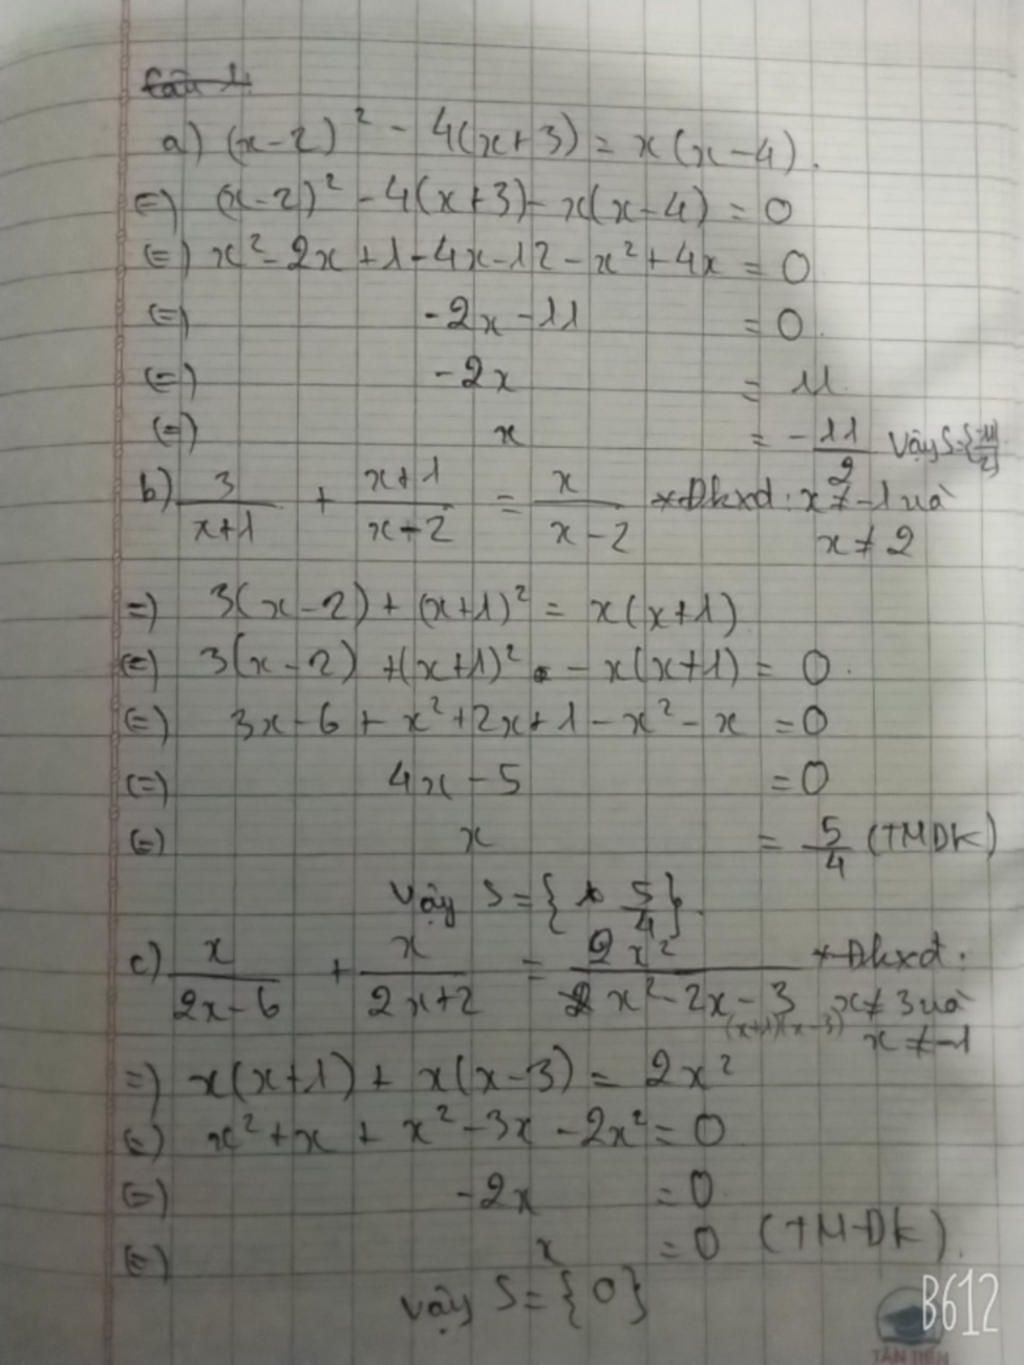 Câu 1
a) (x-2)² - 4(x+3) = x(x-4).
=) (x-2)² - 4(x+3) - x(x-4) = 0
(=) x² - 2x + 1 - 4x - 12 - x² + 4x = 0
(=) -2x - 11 = 0.
(=) -2x = 11.
(=) x = -11/2 Vậy S={-11/2}
b) 3/(x+1) + (x+1)/(x-2) = x/(x-2) *Đkxđ: x ≠ -1 và
x ≠ 2
=) 3(x-2) + (x+1)² = x(x+1)
(=) 3(x-2) + (x+1)² - x(x+1) = 0.
(=) 3x - 6 + x² + 2x + 1 - x² - x = 0
(=) 4x - 5 = 0
(=) x = 5/4 (TMĐK)
Vậy S = { 5/4 }.
c) x/(2x-6) + x/(2x+2) = 2x²/(x²-2x-3) *Đkxđ:
(x+1)(x-3) x ≠ 3 và
x ≠ -1
=) x(x+1) + x(x-3) = 2x²
(=) x² + x + x² - 3x - 2x² = 0
(=) -2x = 0
(=) x = 0 (TMĐK).
Vậy S = {0}
B612